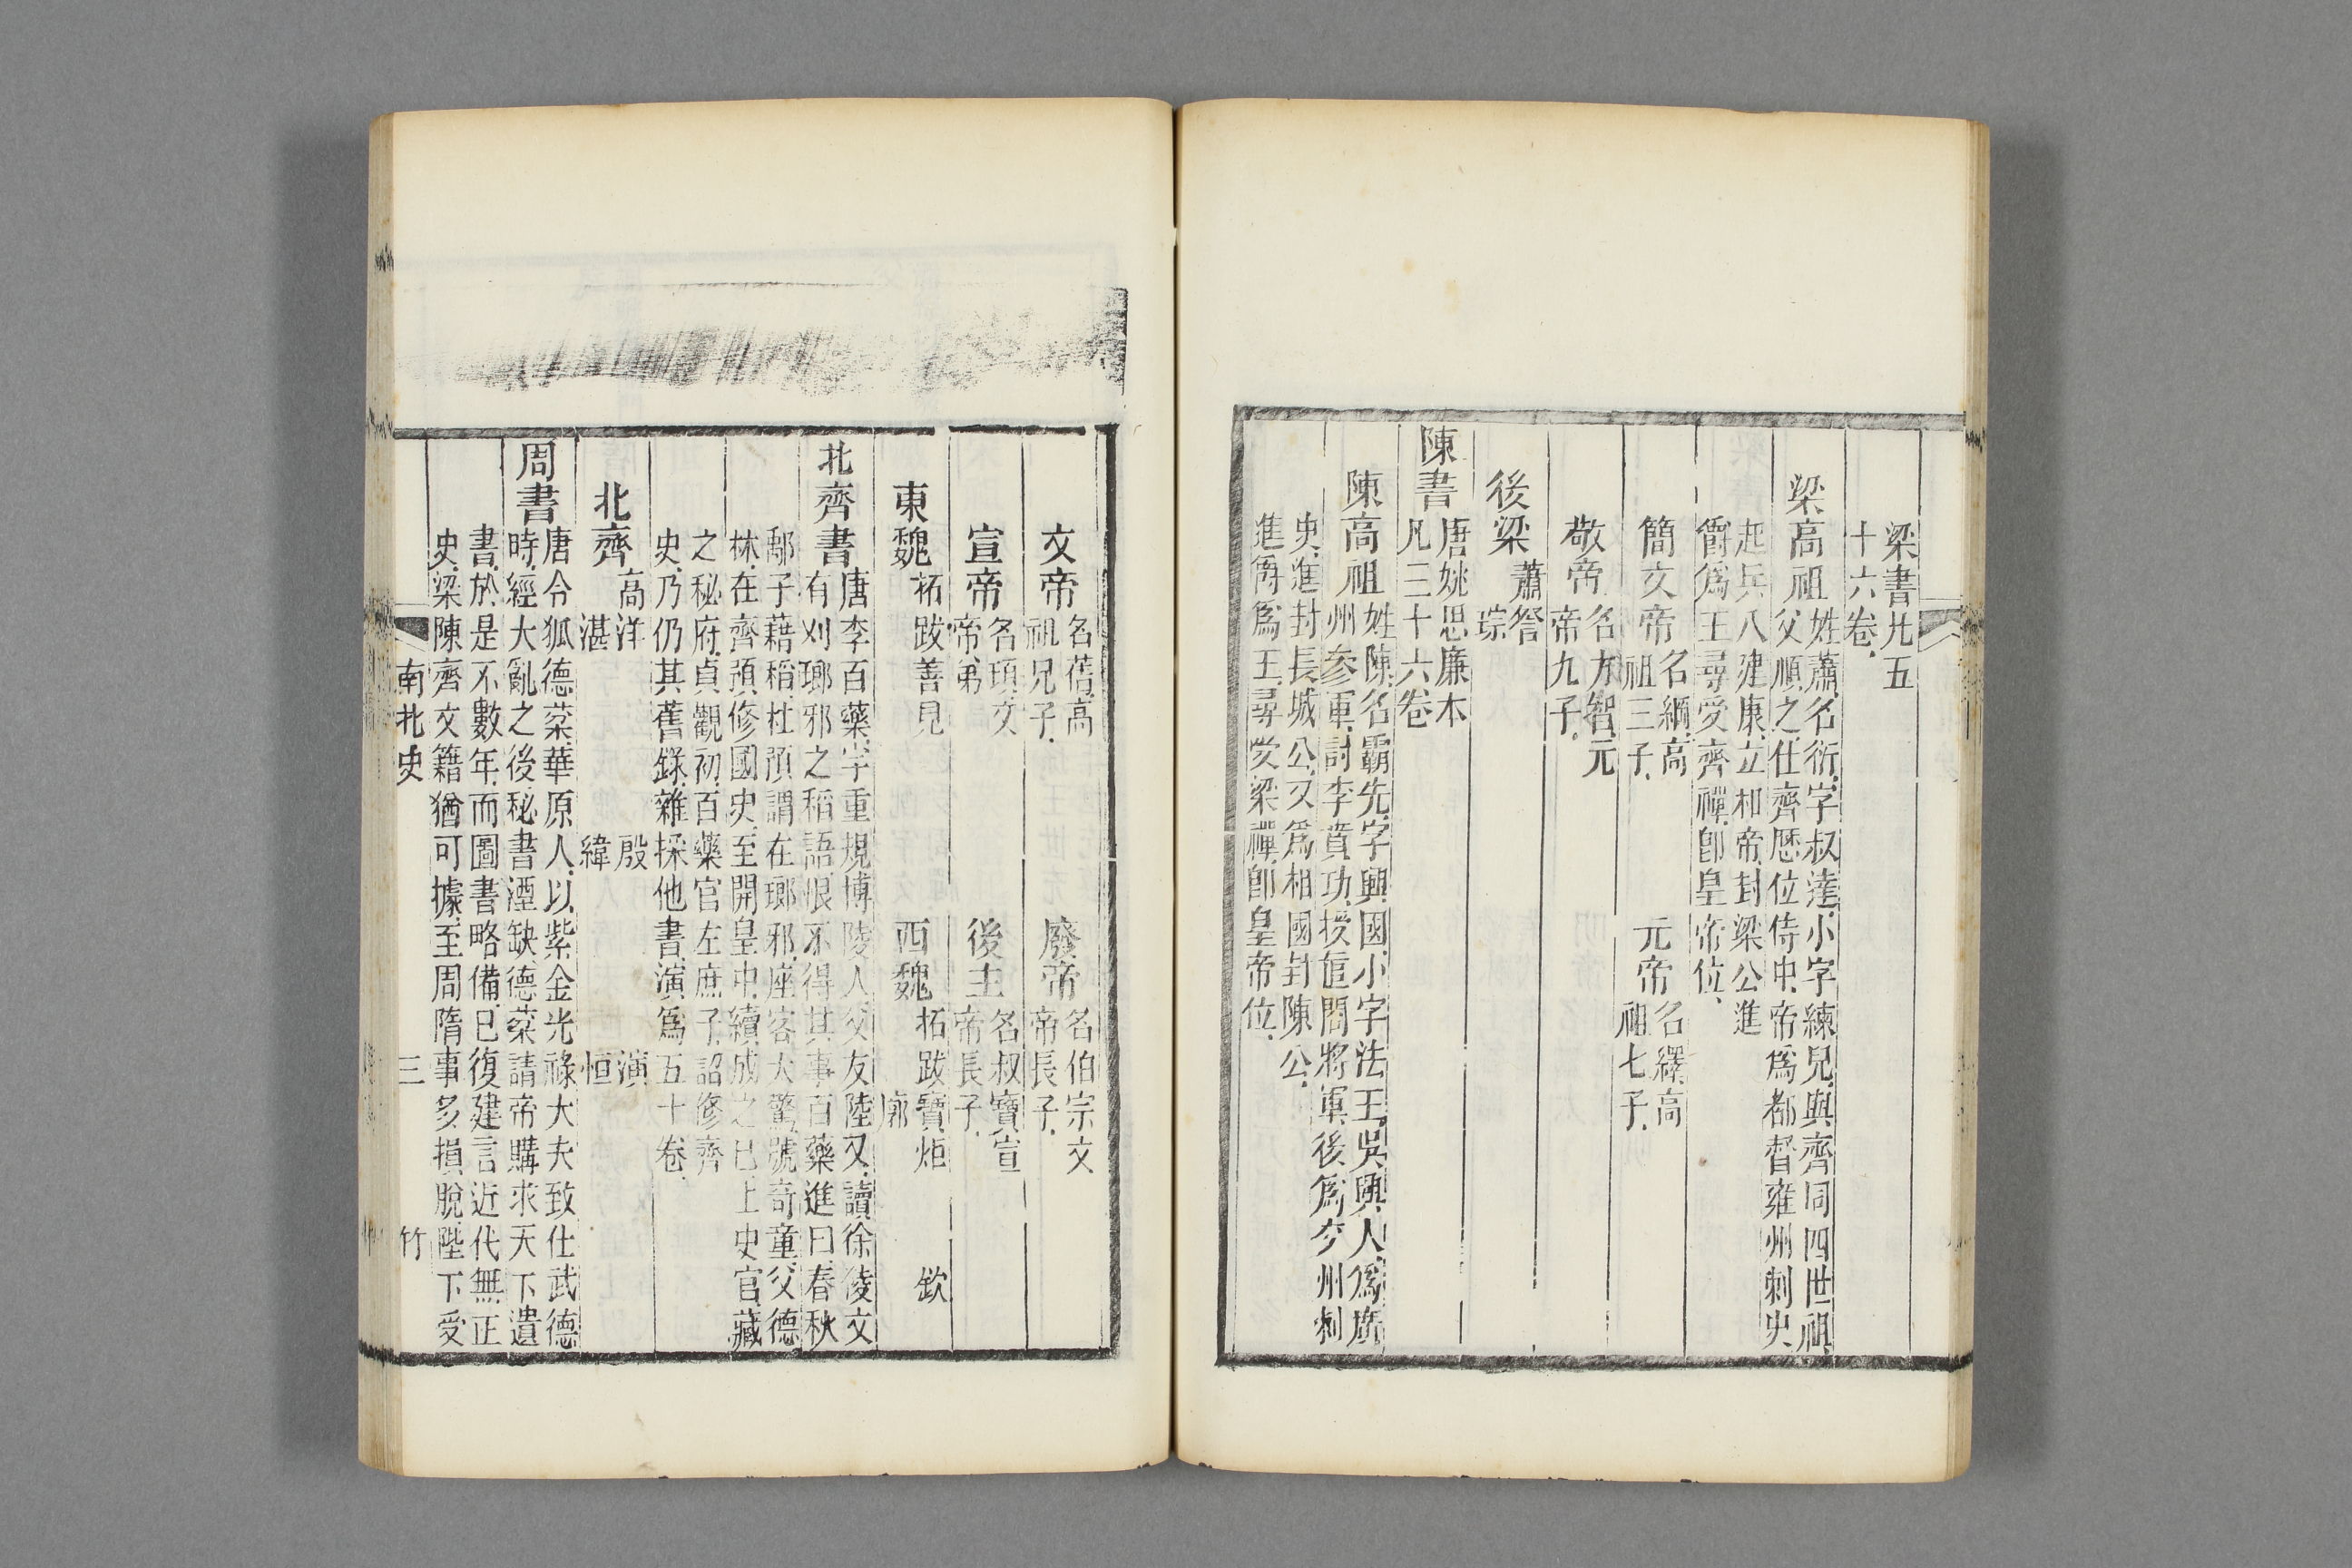 梁書凡五
十六卷
梁高祖 姓蕭名衍字叔達小字練兒與齊同四世祖
父順之仕齊歷位侍中帝爲都督雍州刺史
起兵入建康立和帝封梁公進
爵爲王尋受齊禪卽皇帝位
簡文帝 名綱高
祖三子
元帝 名繹高
祖七子
敬帝 名方智元
帝九子
後梁 蕭詧
琮
陳書 唐姚思廉本
凡三十六卷
陳高祖 姓陳名霸先字興國小字法王吳興人爲廣
州參軍討李賁功授直閤將軍後爲交州刺
史進封長城公又爲相國封陳公
進爵爲王尋受梁禪卽皇帝位
文帝 名蒨高
祖兄子
廢帝 名伯宗文
帝長子
宣帝 名頊文
帝弟
後主 名叔寶宣
帝長子
東魏 拓跋善見
西魏 拓跋寶炬 欽
廓
北齊書 唐李百藥字重規博陵人父友陸乂讀徐陵文
有刈瑯邪之稻語恨不得其事百藥進曰春秋
鄅子藉稻杜預謂在瑯邪座客大驚號奇童父德
林在齊預修國史至開皇中續成之已上史官藏
之秘府貞觀初百藥官左庶子詔修齊
史乃仍其舊錄雜採他書演爲五十卷
北齊 高洋 殷 演
湛 緯 恒
周書 唐令狐德棻華原人以紫金光祿大夫致仕武德
時經大亂之後秘書湮缺德棻請帝購求天下遺
書於是不數年而圖書略備已復建言近代無正
史梁陳齊文籍猶可據至周隋事多損脫陛下受
南北史 三 竹